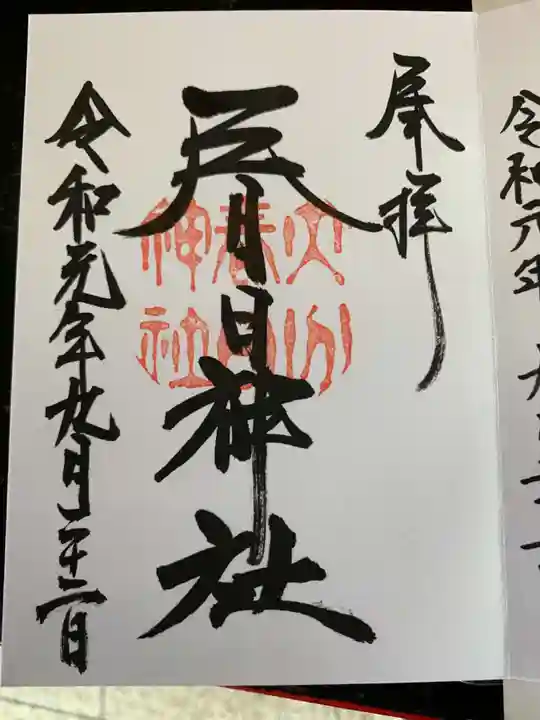 奉拝
春日神社
春日
神社
令和元年九月二十二日
令和元年